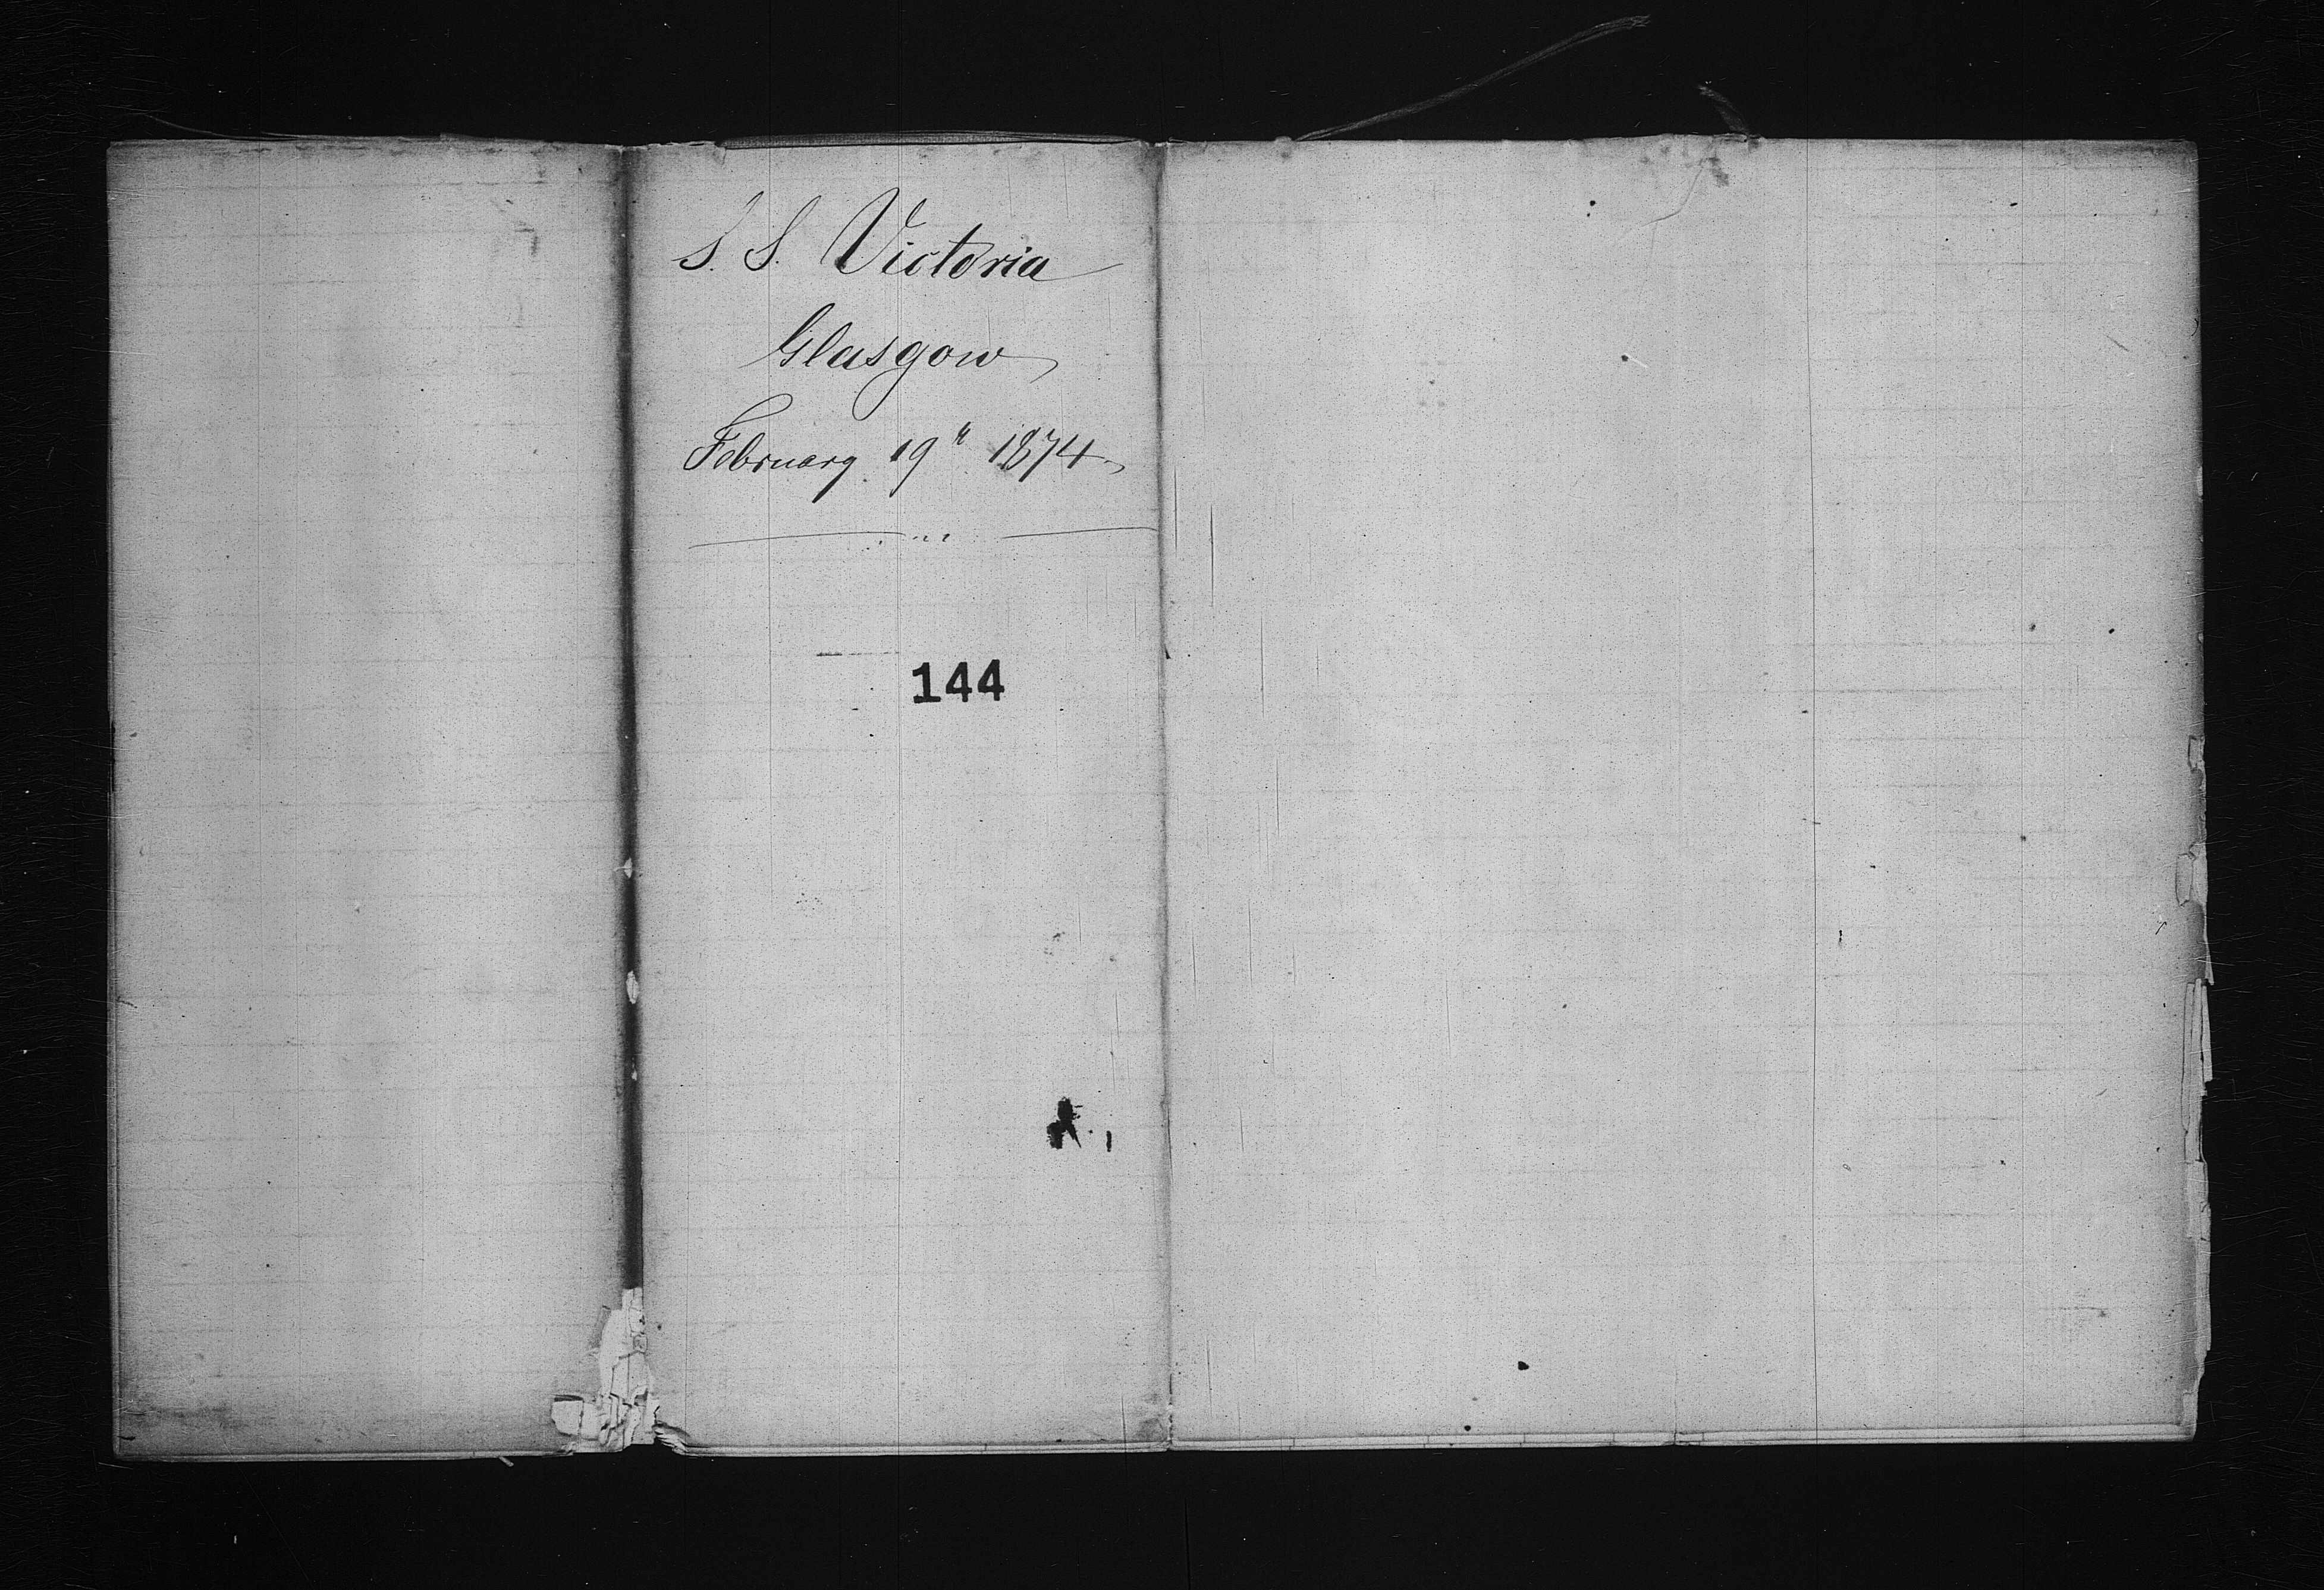 S. S. Victoria
Glasgow
February 19th 1874
144